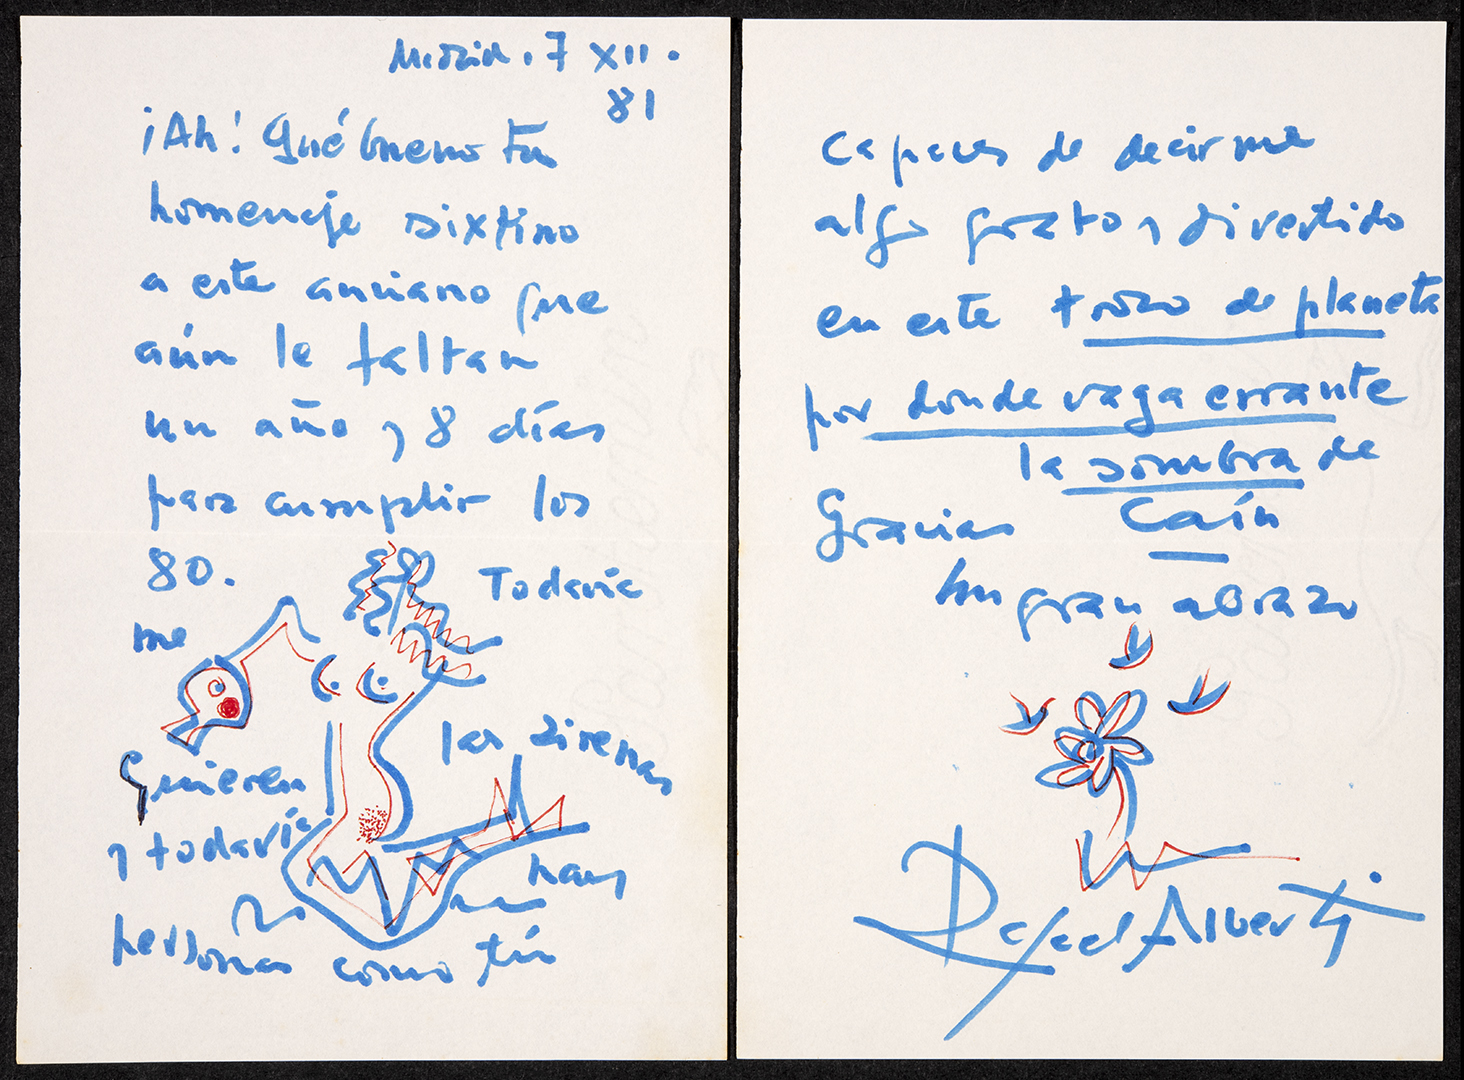 Madrid. 7 XII.
81
¡Ah! Qué bueno tu
homenaje sixtino
a este anciano que
aún le faltan
un año y 8 días
para cumplir los
80. Todavía
me
las sirenas
quieren
y todavía
hay
personas como tú
capaces de decirme
algo grato y divertido
en este trozo de planeta
por donde vaga errante
la sombra de
Caín
Gracias
Un gran abrazo
Rafael Alberti